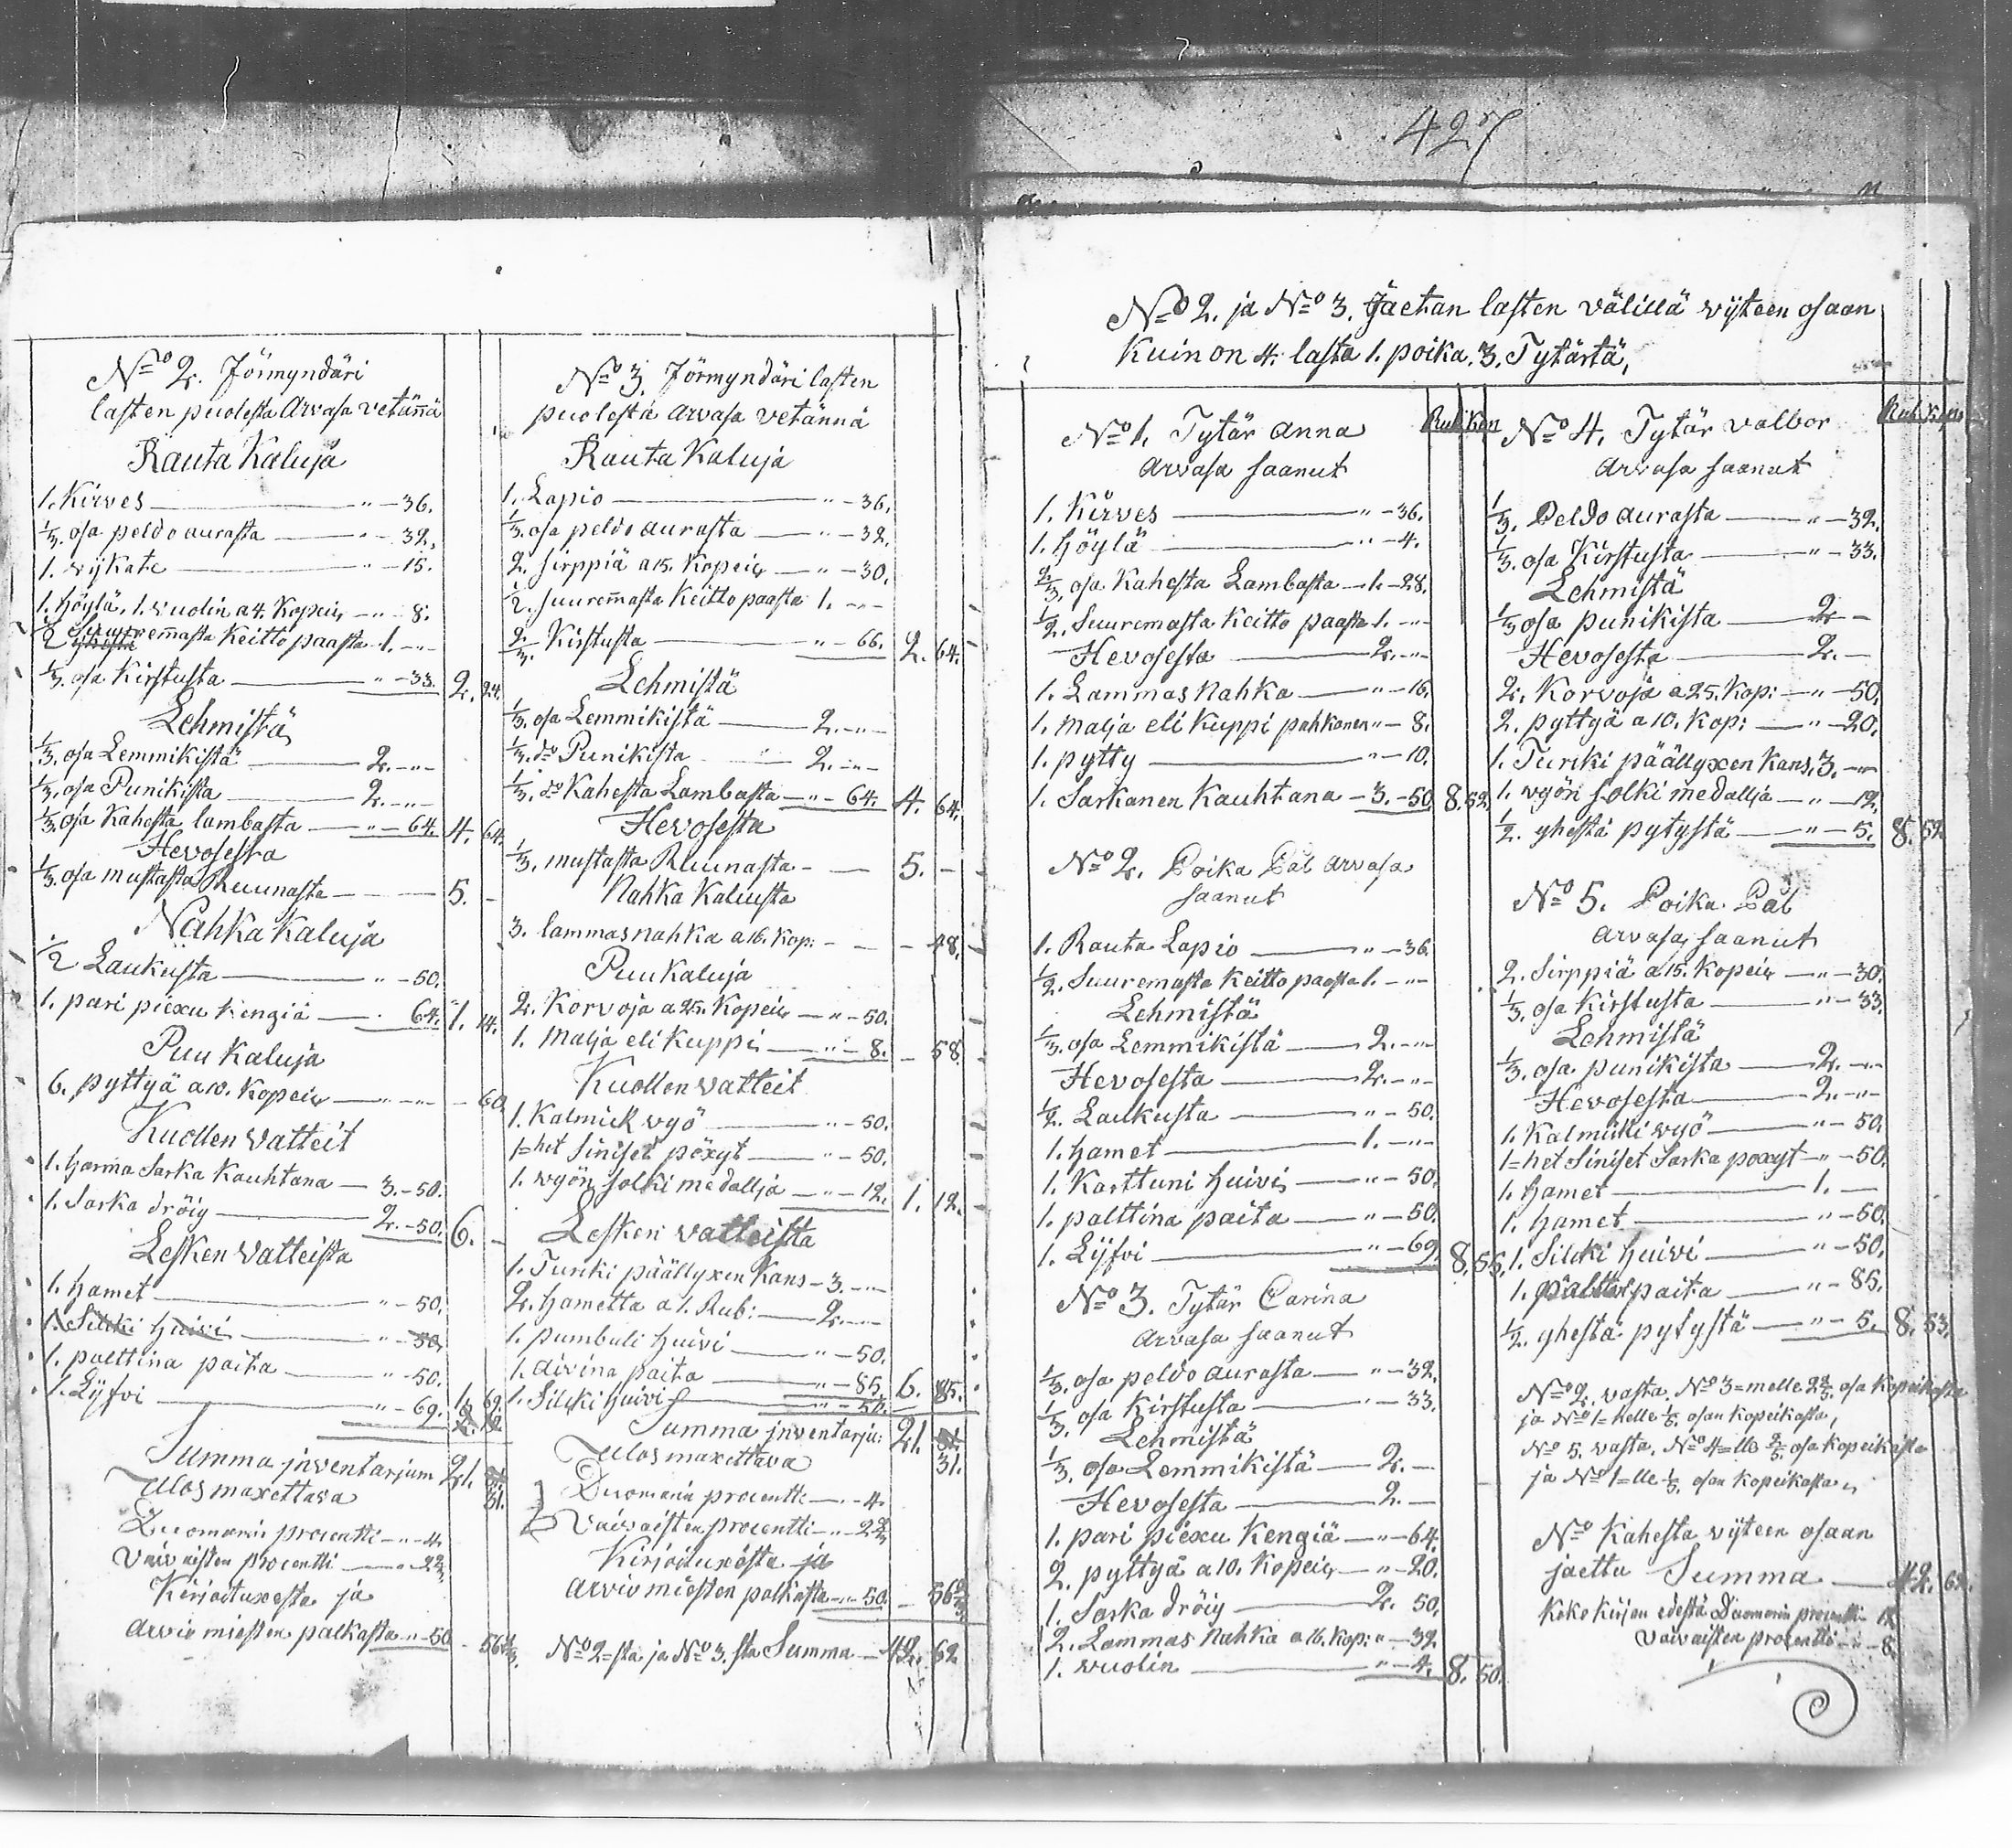 427
N:o 2. Förmyndäri
lasten puolesta Arvasa vetänä
Rauta Kaluja
1. Kirves — " — 36.
1/3. osa peldo aurasta — " — 32.
1. wijkate — " — 15.
1. höylä, 1. vuolin a 4. Kopeix — " — 8.
1/2 Suuremasta Keitto paasta 1. — " —
1/3. osa Kirstusta — " — 33. 2. 24.
Lehmistä
1/3. osa Lemmikistä — 2. — " —
1/3. osa Punikista — 2. — " —
1/3. osa Kahesta lambasta — " — 64. 4. 64.
Hevosesta
1/3. osa mustasta Ruunasta — 5. —
Nahka Kaluja
1/2 Laukusta — " — 50.
1. pari piexu Kengiä — 64. 1. 14.
Puu Kaluja
6. pyttyä a 10. Kopeix — " — " — 60.
Kuollen Vatteit
1. harma Sarka Kauhtana — 3. — 50.
1. Sarka dröig — 2. — 50. 6. —
Lesken Vatteista
1. hamet — " — 50.
1. Silcki huivi — " — 50.
1. palttina paita — " — 50.
1. Lijfvi — " — 69. 1. 69.
Summa inventarium 21. 31.
Ulos maxettava
Duomarin procentti — " — 4.
Vaivaisten procentti — " — 2 2/3.
Kirjoituxesta ja
Arvio miesten palkasta " — 50 — 56 2/3.
N:o 3. Förmyndäri lasten
puolesta arvasa vetännä
Rauta Kaluja
1. Lapio — " — 36.
1/3. osa peldo aurasta — " — 32.
2. sirppiä a 15. Kopeix — " — 30.
1/2. suuremasta Keitto paasta 1. — " —
2/3. Kirstusta — " — 66. 2. 64.
Lehmistä
1/3. osa Lemmikistä — 2. — " —
1/3. do Punikista — 2. — " —
1/3. do Kahesta Lambasta — " — 64. 4. 64.
Hevosesta
1/3. mustasta Ruunasta — 5. —
Nahka Kalusta
3. lammasnahka a 16. Kop: — — 48.
Puu Kaluja
2. Korvoja a 25. Kopeix — " — 50.
1. Malja eli Kuppi — " — 8. — 58.
Kuollen vatteit
1. Kalmick wyö — " — 50.
1=het Siniset pöxyt — " — 50.
1. wyön solki medallja — " — 12. 1. 12.
Lesken vatteista
1. Turcki päällyxen Kans — 3. — " —
2. hametta a 1. Rub: — 2. — " —
1. pumbuli huivi — " — 50.
1. aivina paita — " — 85. 6. 85.
1. Silcki huivi — " — 50.
Summa inventarju: 21. 31.
Ulos maxettava
Duomarin procentti — " — 4.
Vaivaisten procentti — " — 2 2/3.
Kirjoituxesta ja
arvio miesten palkasta — " — 50. — 56 2/3.
N:o 2=sta ja N:o 3. sta Summa — 42. 62
N:o 2. ja N:o 3. Jaetan lasten välillä wijteen osaan
Kuin on 4. lasta 1. poika. 3. Tytärtä,
N:o 1. Tytär Anna Rub. Kop
arvasa saanut
1. Kirves — " — 36.
1. höylä — " — 4.
2/3. osa Kahesta Lambasta — 1. — 28.
1/2. Suuremasta Keitto paasta 1. — " —
Hevosesta — 2. — " —
1. Lammas Nahka — " — 16.
1. Malja eli Kuppi pahkanen " — 8.
1. pytty — " — 10.
1. Sarkanen Kauhtana — 3. — 50 8. 52.
N:o 2. Poika Pål arvasa
saanut
1. Rauta Lapio — " — 36.
1/2. Suuremasta Keitto paasta 1. — " —
Lehmistä
1/3. osa Lemmikistä — 2. — " —
Hevosesta — 2. — " —
1/2. Laukusta — " — 50.
1. hamet — 1. — " —
1. Karttuni huivi — " — 50.
1. palttina paita — " — 50.
1. Lijfvi — " — 69. 8. 55.
N:o 3. Tytär Carina
arvasa saanut
1/3. osa peldo aurasta — " — 32.
1/3. osa Kirstusta — " — 33.
Lehmistä
1/3. osa Lemmikistä — 2. —
Hevosesta — 2. —
1. pari piexu Kengiä — " — 64.
2. pyttyä a 10. Kopeix — " — 20.
1. Sarka dröig — 2. 50.
2. Lammas Nahka a 16. Kop: " — 32
1. vuolin — " — 4. 8. 50.
N:o 4. Tytär Valbor Rub. Kop
arvasa saanut
1/3. Peldo aurasta — " — 32.
1/3. osa Kirstusta — " — 33.
Lehmistä
1/3 osa punikista — 2. —
Hevosesta — 2. —
2. Korvoja a 25. Kop: — " — 50.
2. pyttyä a 10. Kop: — " — 20.
1. Turcki päällyxen Kans, 3. — " —
1. wyön solki medallja — " — 12.
1/2. yhestä pytystä — " — 5. 8. 52
N:o 5. Poika Pål
arvasa saanut
2. Sirppiä a 15. Kopeix — " — 30.
1/3. osa Kirstusta — " — 33.
Lehmistä
1/3. osa punikista — 2. — " —
Hevosesta — 2. — " —
1. Kalmicki wyö — " — 50.
1=het Siniset Sarka poxyt — " — 50.
1. hamet — 1. —
1. hamet — " — 50.
1. Silcki huivi — " — 50.
1. paita — " — 85.
1/2. yhestä pytystä — " — 5. 8. 53.
N:o 2. vasta N:o 3=melle 2 2/5. osa Kopeikasta
ja N:o 1=helle 1/5. osan Kopeikasta,
N:o 5. vasta. N:o 4=lle 2/5. osa Kopeikasta
ja N:o 1=lle 1/5. osan Kopeikasta
N:o Kahesta wijteen osaan
jaettu Summa — 42. 62.
Koko Kirjan edestä Duomarin procentti 12
Vaivaisten procentti — " — 8.